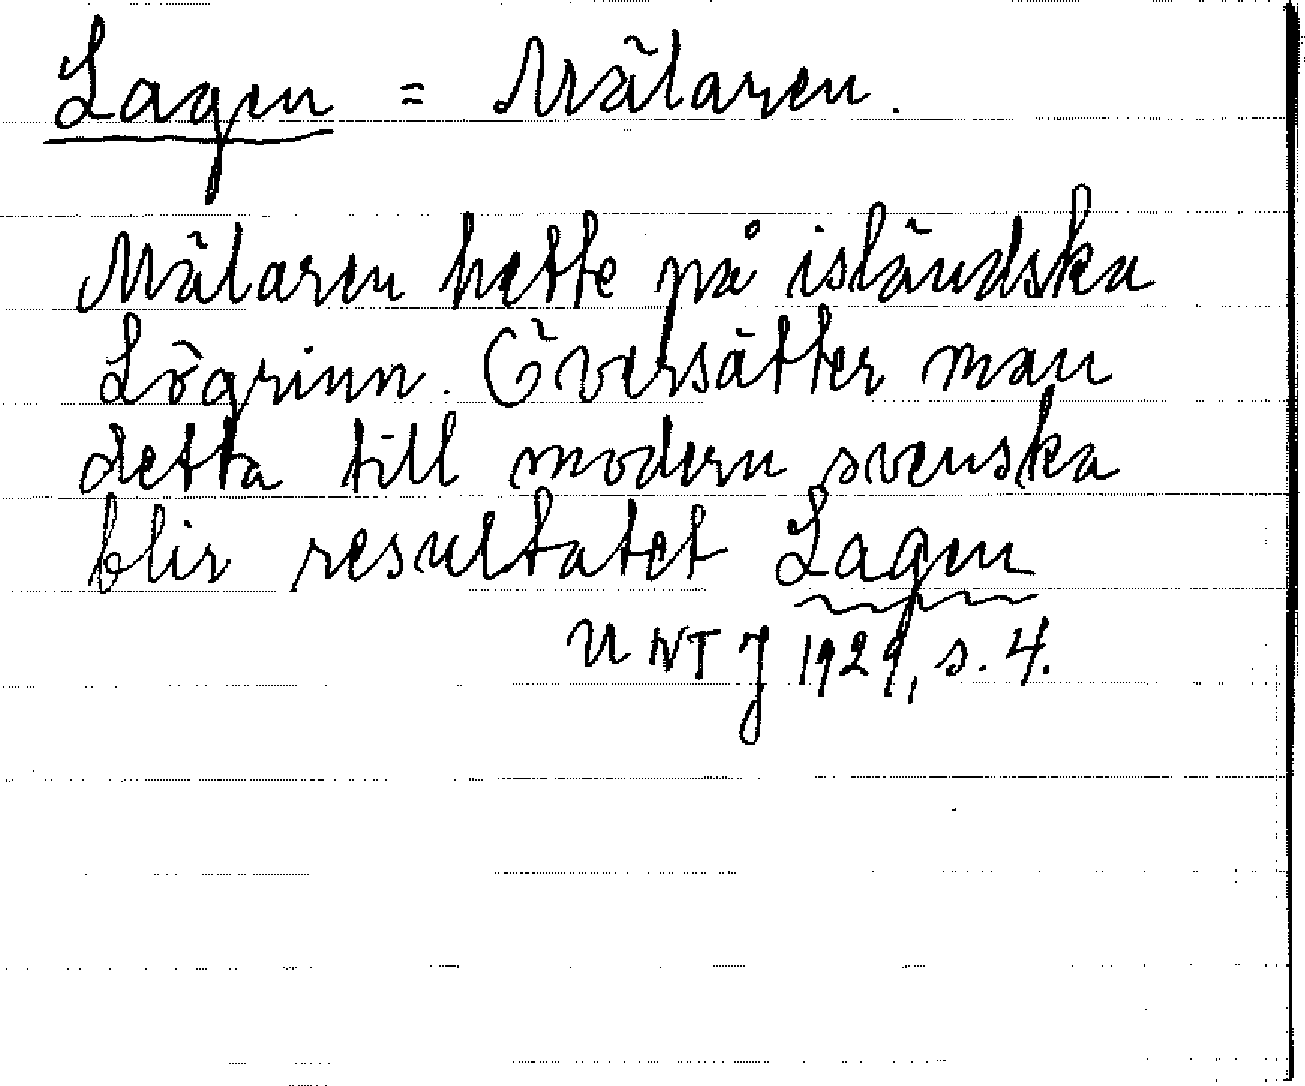 Lagen = Mälaren.
Mälaren hette på isländska
Lögrinn. Översätter man
detta till modern svenska
blir resultatet Lagen
UNT J 1929, s. 4.